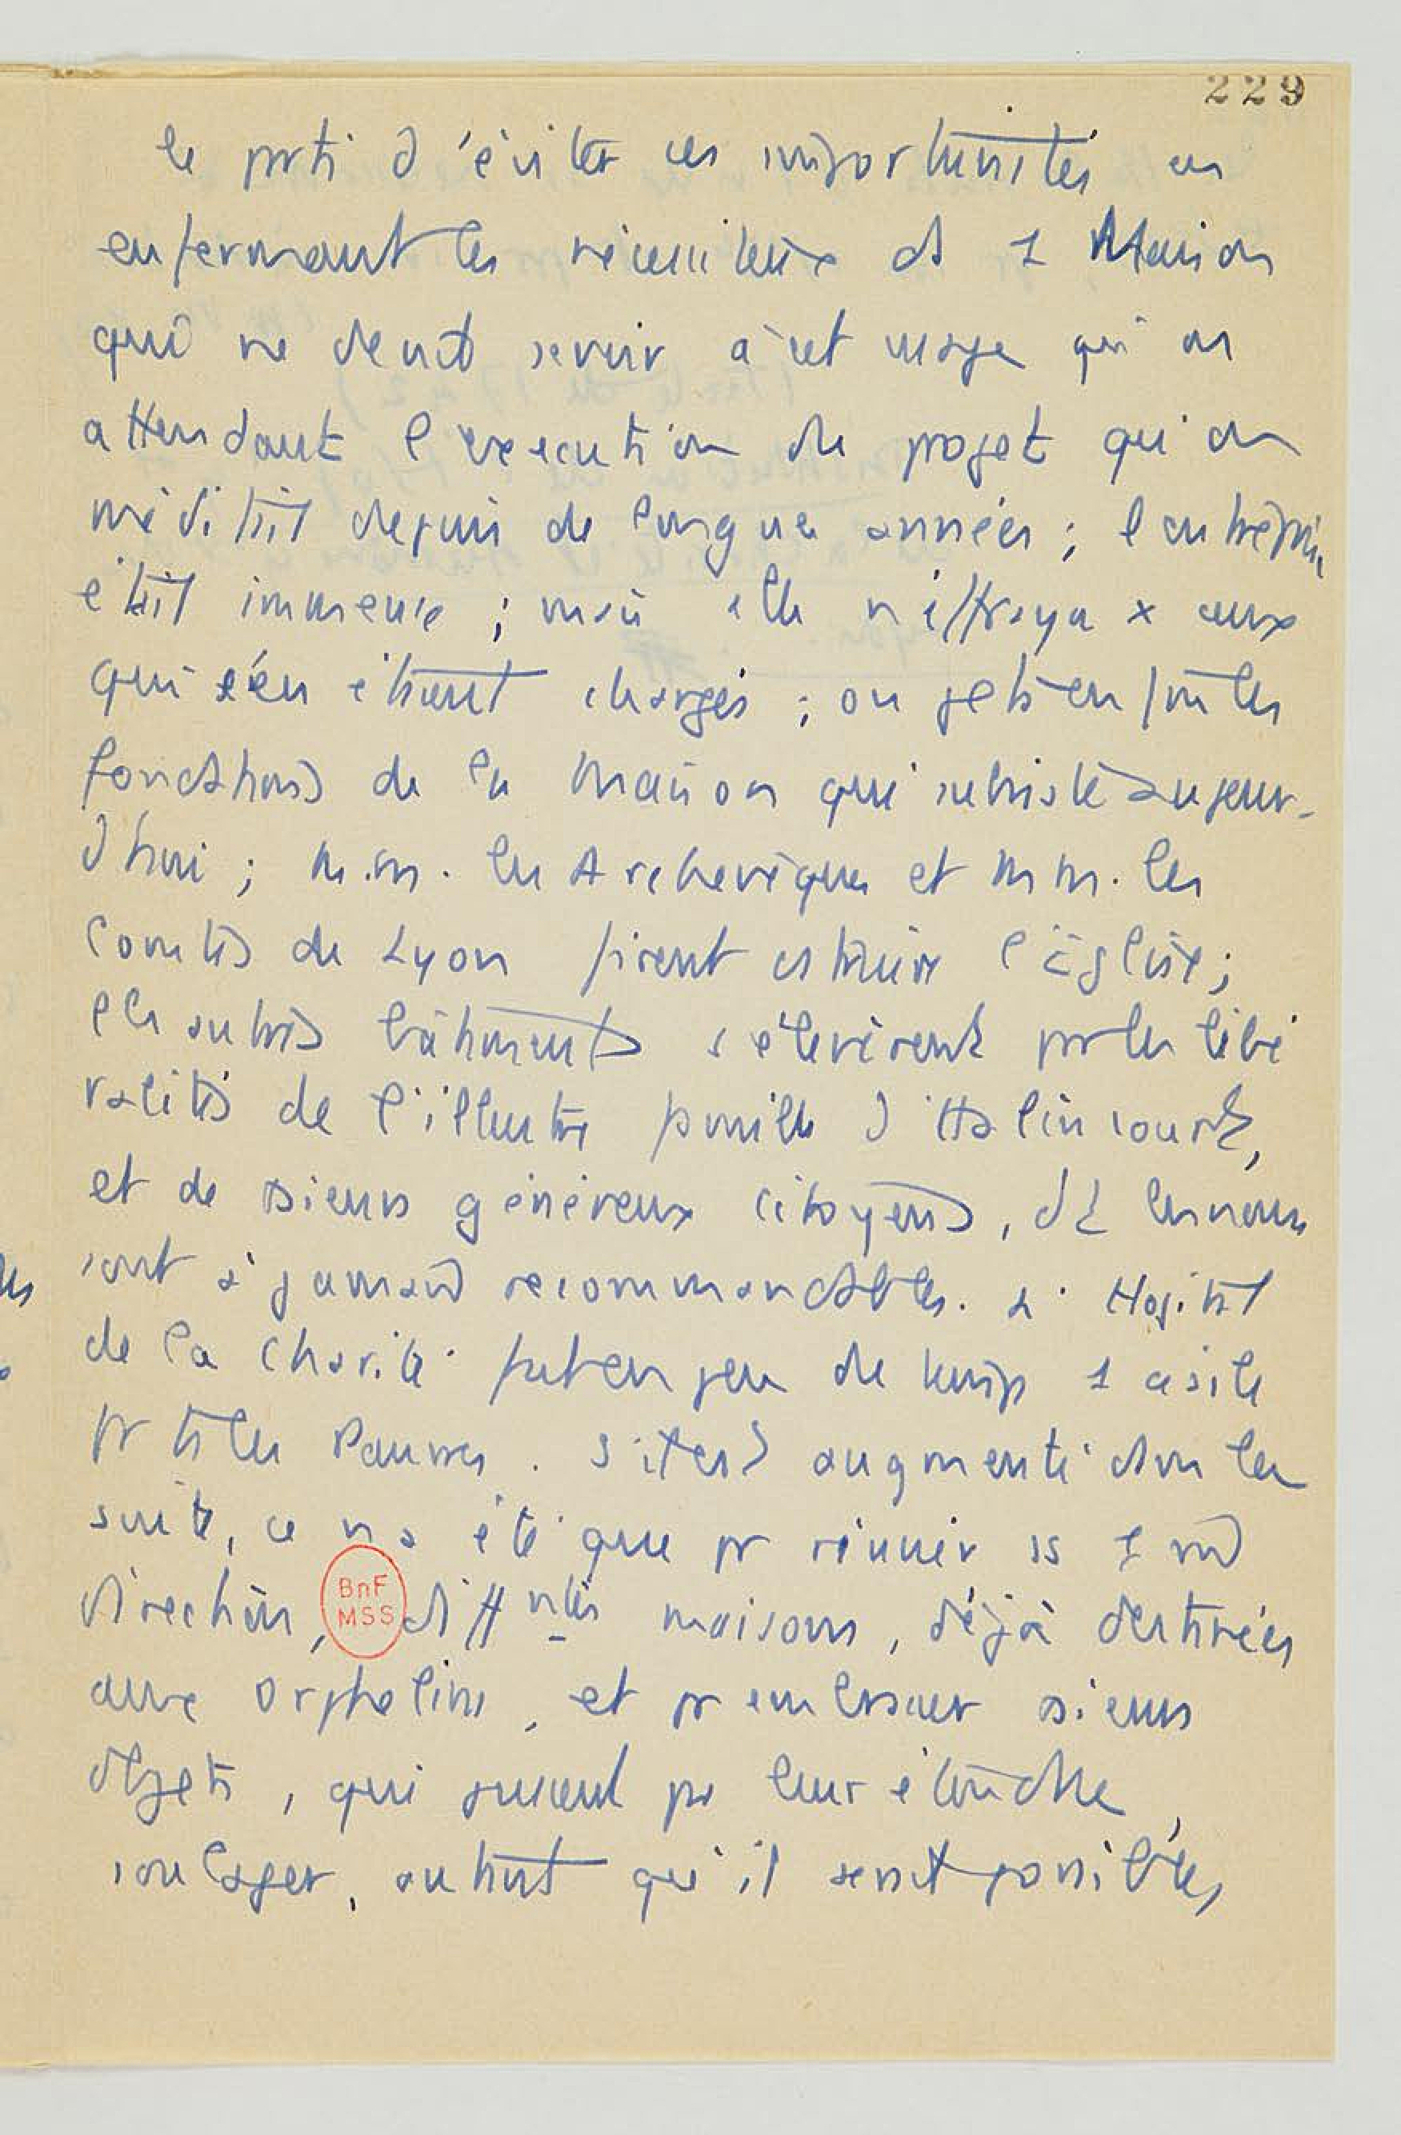 229
le parti d'éviter ces importunités en
enfermant les nécessiteux ds 1 Maison
qui ne devait servir à cet usage qu'en
attendant l'exécution du projet qu'on
méditait depuis de longues années ; l'entreprise
était immense ; mais elle n'effraya x ceux
qui s'en étaient chargés ; on jeta enfin les
fonctions de la maison qui subsiste aujour-
d'hui ; M.M. les Archevêques et MM. les
Comtes de Lyon firent construire l'Église ;
les autres bâtiments s'élevèrent par les libé
ralités de l'illustre famille d'Halincourt,
et de sieurs généreux citoyens, dt les noms
sont à jamais recommandables. L'Hôpital
de la Charité fut en peu de temps 1 asile
pr ts les Pauvres. S'il s'est augmenté dans la
suite, ce n'a été que pr réunir ss 1 m
direction, diff ntes maisons, déjà destinées
aux orphelins, et pr embrasser sieurs
objets, qui puissent par leur étendue,
soulager, autant qu'il serait possible,
BnF
MSS